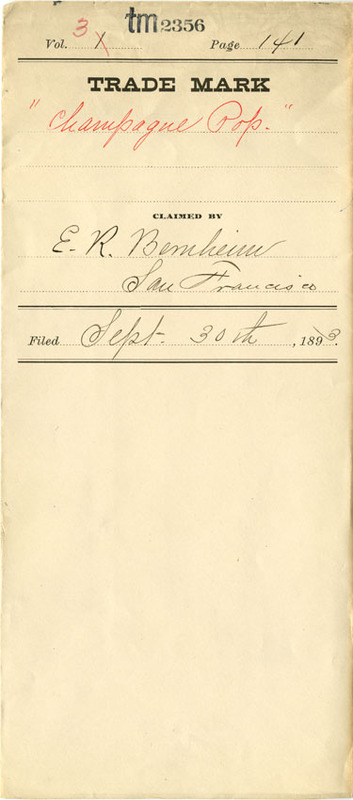 tm2356
Vol. 3 1 Page 141
TRADE MARK
"Champagne Pop."
CLAIMED BY
E. R. Bernheim
San Francisco
Filed Sept. 30th, 1893.